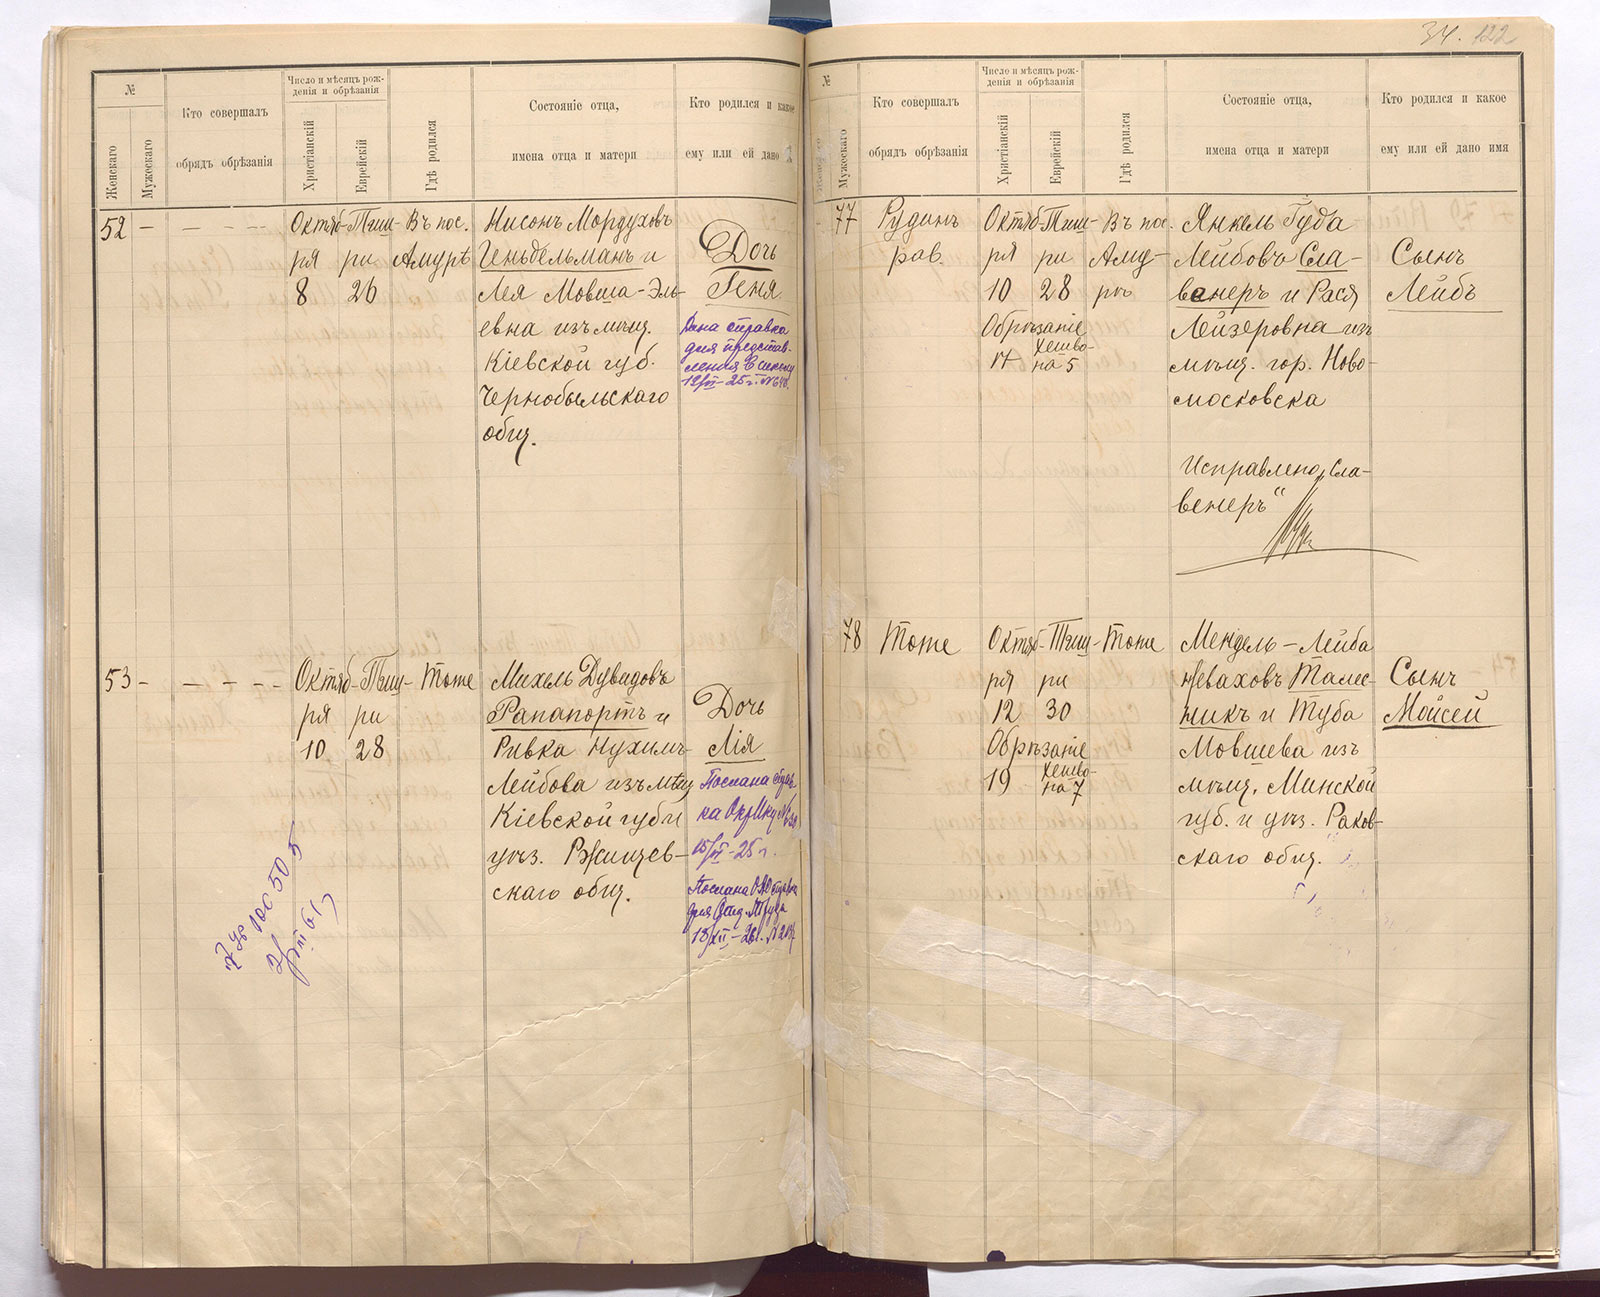 34. 122
№
Женскаго
Мужескаго
Кто совершалъ
обрядъ обрѣзанія
Число и мѣсяцъ рож-
денія и обрѣзанія
Христіанскій
Еврейскій
Гдѣ родился
Состояніе отца,
имена отца и матери
Кто родился и какое
ему или ей дано
52 - - - - -
Октяб-
ря
8
Тиш-
ри
26
Въ пос.
Амурѣ
Нисонъ Мордуховъ
Геньдельманъ и
Лея Мовша-Эль-
евна изъ мѣщ.
Кіевской губ.
Чернобыльскаго
общ.
Дочь
Геня
Дана справка
для представ-
ления в
53 - - - - -
Октяб-
ря
10
Тиш-
ри
28
Тоже
Михель Дувидовъ
Рапапортъ и
Ривка Нухимъ-
Лейбова изъ мѣщ
Кіевской губ и
уѣз. Ржищев-
скаго общ.
Дочь
Лія
Послана справ
ка Окр
15/ - 25 г.
Послана
для Отд. Труда
№
Мужескаго
Кто совершалъ
обрядъ обрѣзанія
Число и мѣсяцъ рож-
денія и обрѣзанія
Христіанскій
Еврейскій
Гдѣ родился
Состояніе отца,
имена отца и матери
Кто родился и какое
ему или ей дано имя
77
Рудинъ
рав.
Октяб-
ря
10
Обрѣзаніе
17
Тиш-
ри
28
Хешво-
на 5
Въ пос.
Аму-
рѣ
Янкель Гуда
Лейбовъ Сла-
венеръ и Рася
Лейзеровна изъ
мѣщ. гор. Ново-
московска
Исправлено „Сла-
венеръ“
Сынъ
Лейбъ
78
Тоже
Октяб-
ря
12
Обрѣзаніе
19
Тиш-
ри
30
Хешво-
на 7
Тоже
Мендель-Лейба
Неваховъ Талес-
никъ и Туба
Мовшева изъ
мѣщ. Минской
губ. и уѣз. Раков-
скаго общ.
Сынъ
Мойсей